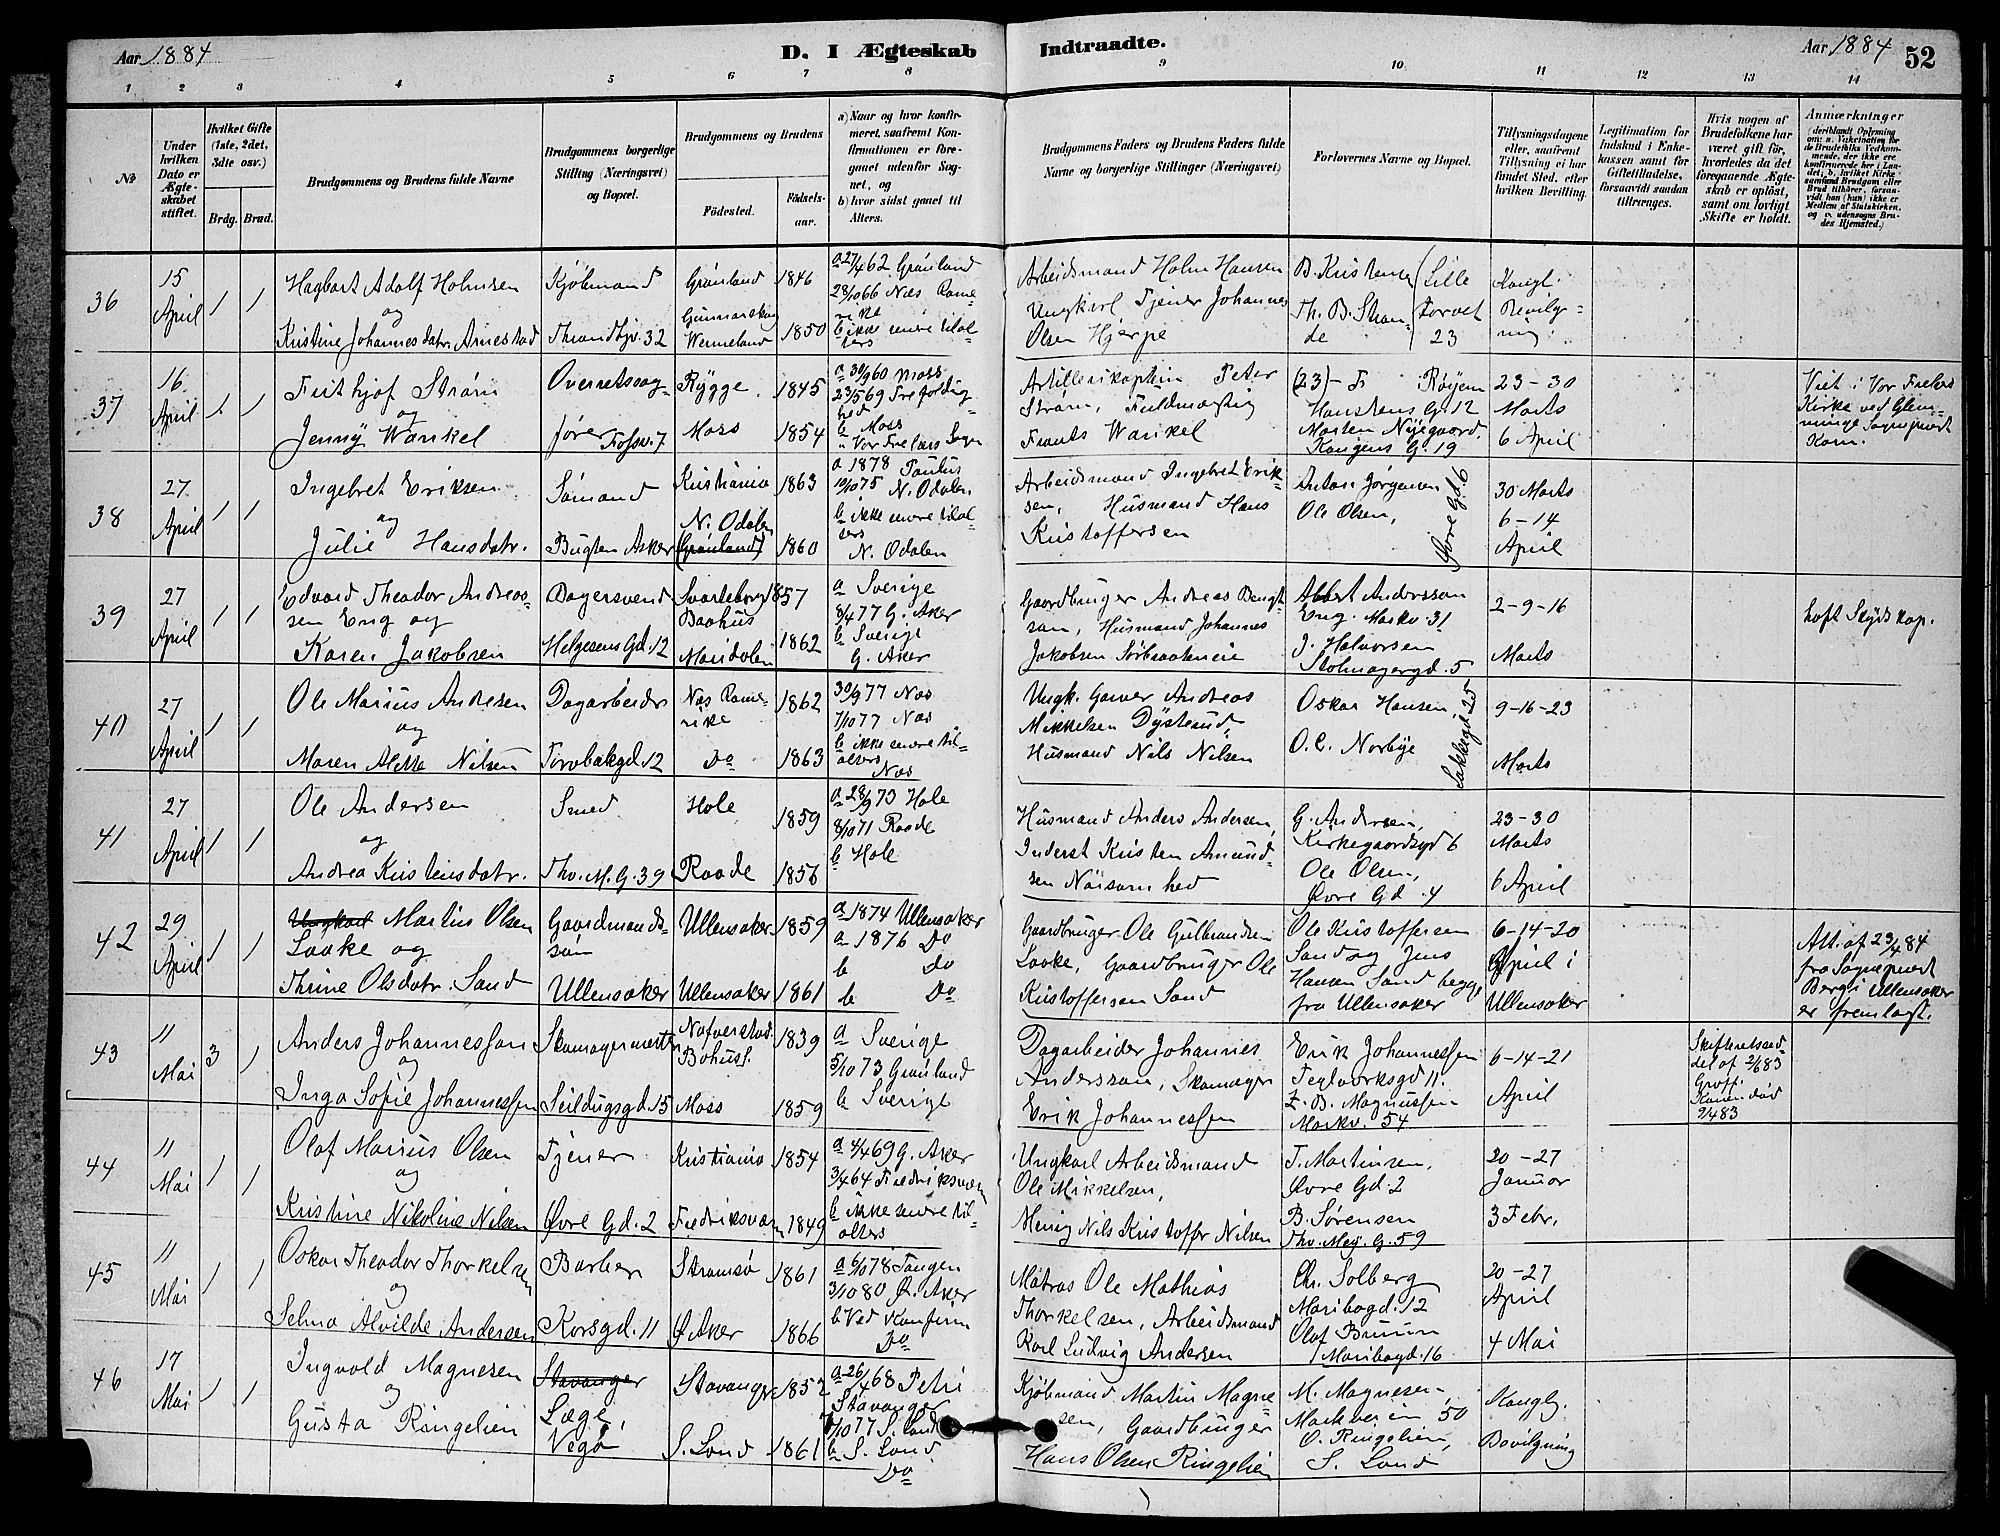 Aar 1884
D. I Ægteskab Indtraadte.
Aar 1884
52
1 2 3 4 5 6 7 8 9 10 11 12 13 14
№
Under hvilken Dato er Ægteskabet stiftet.
Hvilket Gifte (1ste, 2det, 3die osv.)
Brdg. Brud.
Brudgommens og Brudens fulde Navne
Brudgommens borgerlige Stilling (Næringsvei) og Bopæl.
Brudgommens og Brudens
Fødested.
Fødselsaar.
a) Naar og hvor konfirmeret, saafremt Konfirmationen er foregaaet udenfor Sognet, og
b) hvor sidst gaaet til Alters.
Brudgommens Faders og Brudens Faders fulde Navne og borgerlige Stillinger (Næringsvei)
Forlovernes Navne og Bopæl.
Tillysningsdagene eller, saafremt Tillysning ei har fundet Sted, efter hvilken Bevilling.
Legitimation for Indskud i Enkekassen samt for Giftetilladelse, forsaavidt saadan tiltrænges.
Hvis nogen af Brudefolkene har været gift før, hvorledes da det foregaaende Ægteskab er opløst, samt om lovligt Skifte er holdt.
Anmærkninger
36
15 April
1 1
Hagbart Adolf Holmsen
og
Kristine Johannesdatr. Arnestad
Kjøbmand
Throndhjv. 32
Grønland 1846
Gunnarskog Wermeland 1850
a 27/4 62 Grønland
28/10 66 Næs Romerike
b ikke senere tilalters
Arbeidsmand Holm Hansen
Ungkarl Tjener Johannes
Olsen Hjerpe
B. Kristensen
Th. B. Strande
Lille Torvet 23
Kongl. Bevilgning
37
16 April
1 1
Frithjof Strøm
og
Jenny Wankel
Overretssagfører Fossv. 7
Rygge 1845
Moss 1854
a 30/9 60 Moss
23/5 69 Trefoldighed
b Moss
" Vor Frelsers Sogn
Artillerikaptein Peter
Strøm, Fuldmægtig
Frants Wankel
(23) - F Røyem
Hanstens G. 12
Morten Nygaard
Kongens G. 19
23-30
Marts
6 April
Viet i Vor Frelsers Kirke ved
38
27 April
1 1
Ingebret Eriksen
og
Julie Hansdatr.
Sømand
Bugten Aker
Kristiania 1863
N. Odalen (Grønland) 1860
a 1878 Paulus
10/10 75 N. Odalen
b ikke senere tilalters
N. Odalen
Arbeidsmand Ingebret Eriksen, Husmand Hans
Kristoffersen
Anton Jørgensen
Ole Olsen,
Øvre Gd. 6
30 Marts
6-14
April
39
27 April
1 1
Edvard Theodor Andreassen Eng og
Karen Jakobsen
Bagersvend
Helgesens Gd. 12
Svarteborg Baahus 1857
Maridalen 1862
a Sverige
8/4 77 G. Aker
b Sverige
G. Aker
Gaardbruger Andreas Bengtson, Husmand Johannes
Jakobsen Sørbraateneie
Albert Anderssen
Eng. Markv. 31
J. Halvorsen
Stolmagergd. 5
2-9-16
Marts
40
27 April
1 1
Ole Marius Andresen
og
Maren Alette Nilsen
Dagarbeider
Torvbakgd. 12
Næs Romerike 1862
Do 1863
30/9 77 Næs
7/10 77 Næs
b ikke senere tilalters
Næs
Ungk. Garver Andreas
Mikkelsen Dysterud
Husmand Nils Nilsen
Oskar Hansen,
O. C. Norbye
Lakkegd. 25
9-16-23
Marts
41
27 April
1 1
Ole Andersen
og
Andrea Kristensdatr.
Smed
Thv. M. G. 39
Hole 1859
Raade 1856
a 28/9 73 Hole
8/10 71 Raade
b Hole
Husmand Anders Andersen,
Inderst Kristen Amundsen Nøisomhed
G. Andersen,
Kirkegaardsgd 6
Ole Olsen,
Øvre Gd. 4
23-30
Marts
6 April
42
29 April
1 1
Ungkarl Martin Olsen
Laake og
Thrine Olsdatr. Sand
Gaardmandssøn
Ullensaker
Ullensaker 1859
Ullensaker 1861
a 1874 Ullensaker
a 1876 Do
b Do
b Do
Gaardbruger Ole Gulbrandsen
Laake, Gaardbruger Ole
Kristoffersen Sand
Ole Kristoffersen
Sand og Jens
Hansen Sand begge
fra Ullensaker
6-14-20
April i
Ullensaker
Att. af 23/4 84
fra Sognepræst
Berg i Ullensaker
er fremlagt.
43
11 Mai
3 1
Anders Johannesson
og
Inga Sofie Johannessen
Skomagermester
Seildugsgd. 15
Nafverstad Bohusl. 1839
Moss 1859
a Sverige
5/10 73 Grønland
b Sverige
Dagarbeider Johannes
Andersson, Skomager
Erik Johannessen
Erik Johannessen
Teglverksgd 11.
Z. B. Magnussen
Markv. 54
6-14-21
April
44
11 Mai
1 1
Olaf Marius Olsen
og
Kristine Nikoline Nilsen
Tjener
Øvre Gd. 2
Kristiania 1854
Fredriksværn 1849
a 4/4 69 G. Aker
3/4 64 Fredriksværn
b ikke senere tilalters
Ungkarl Arbeidsmand
Ole Mikkelsen,
Menig Nils Kristoffer Nilsen
T. Martinsen,
Øvre Gd. 2
B. Sørensen
Thv. Mey. G. 59
20-27
Januar
3 Febr.
45
11 Mai
1 1
Oskar Theodor Thorkelsen
og
Selma Alvilde Andersen
Barber
Korsgd. 11
Strømsø 1861
Ø. Aker 1866
a 6/10 78 Tangen
3/10 80 Ø. Aker
b Ved Konfirm
Do
Matros Ole Mathias
Thorkelsen, Arbeidsmand
Karl Ludvig Andersen
Chr. Solberg
Maribogd. 12
Olaf Bruun
Maribogd. 16
20-27
April
4 Mai
46
17 Mai
1 1
Ingvald Magnesen
og
Gusta Ringelien
Stavanger
Læge,
Vegø
Stavanger 1852
S. Land 1861
a 26/4 68 Petri
Stavanger
7/10 77 S. Land
b S. Land
Do
Kjøbmand Martin Magnesen, Gaardbruger
Hans Olsen Ringelien
M. Magnesen
Markveien 50
O. Ringelien,
S. Land
Kongl.
Bevilgning